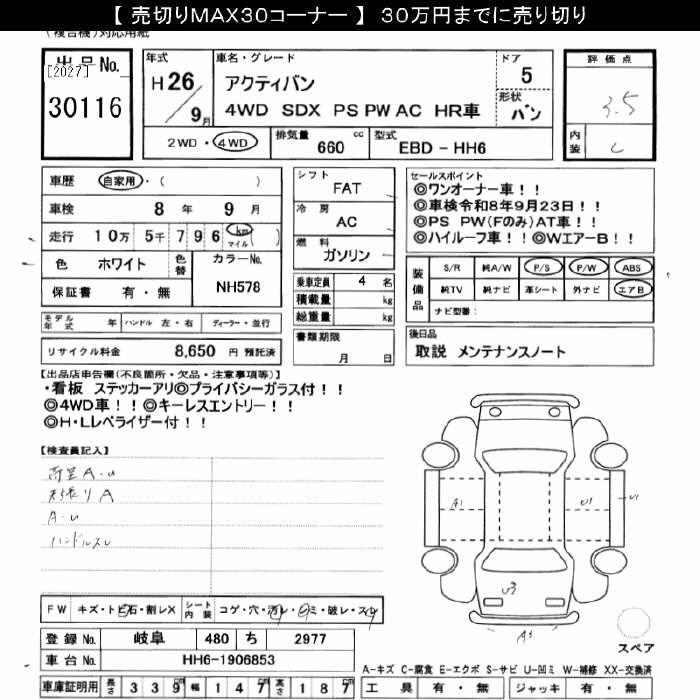 【 売切りMAX30コーナー 】 30万円までに売り切り
(複合機)対応用紙
出品No.
[2027]
30116
年式
H 26
9月
車名・グレード
アクティバン
4WD SDX PS PW AC HR車
ドア
5
形状
バン
評価点
3.5
内装
C
2WD・4WD
排気量
660 cc
型式
EBD - HH6
車歴 自家用・( )
車検 8 年 9 月
走行 10万 5千 7 9 6 km マイル ( )
色 ホワイト
色替
カラーNo.
NH578
保証書 有・無
シフト
FAT
冷房
AC
燃料
ガソリン
乗車定員 4 名
積載量 kg
総重量 kg
セールスポイント
◎ワンオーナー車！！
◎車検令和8年9月23日！！
◎PS PW(Fのみ)AT車！！
◎ハイルーフ車！！◎WエアーB！！
装備品
S/R 純A/W P/S P/W ABS
純TV 純ナビ 革シート 外ナビ エアB
ナビ型番：
モデル年式 年 ハンドル 左・右 ディーラー・並行
書類期限
月 日
後日品
取説 メンテナンスノート
リサイクル料金 8,650 円 預託済
【出品店申告欄(不良箇所・欠品・注意事項等)】
・看板 ステッカーアリ◎プライバシーガラス付！！
◎4WD車！！◎キーレスエントリー！！
◎H・Lレベライザー付！！
【検査員記入】
荷室A・U
A・U
ハンドルスレ
A1
U1
U1
U3
A3
スペア
FW キズ・トビ石・割レX
シート内装 コゲ・穴・汚レ・シミ・破レ・スレ
登録No. 岐阜 480 ち 2977
車台No. HH6-1906853
車庫証明用 長さ 339 cm 幅 147 cm 高さ 187 cm
A-キズ C-腐食 E-エクボ S-サビ U-凹ミ W-補修 XX-交換済
工具 有・無 ジャッキ 有・無